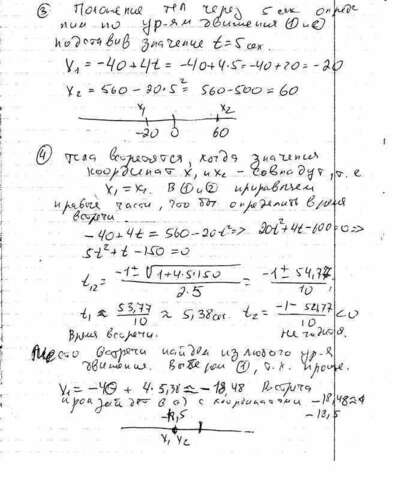 ③ Положение тел через 5 сек опреде
лим по ур-ям движения ① и ②
подставив значение t=5 сек.
X₁ = -40+4t = -40+4·5=-40+20=-20
X₂ = 560-20·5² = 560-500=60
X₁ X₂
-20 0 60
④ Тела встретятся, когда значения
координат X₁ и X₂ - совпадут, т.е
X₁ = X₂. В ① и ② приравняем
правые части, что бы определить время
встречи.
-40+4t = 560-20t² => 20t²+4t-100=0 =>
5t²+t-150=0
t₁,₂ = (-1±√(1+4·5·150))/(2·5) = (-1± 54,77)/10 ;
t₁ ≈ 53,77/10 ≈ 5,38 сек. t₂ = (-1-54,77)/10 <0
Время встречи. Не годится.
Место встречи найдем из любого ур-я
движения. Выберем ①, т.к. проще.
X₁ = -40 + 4·5,38 ≈ -18,48 Встреча
произойдет в с координатами -18,48≈
-18,5
-18,5
X₁ X₂